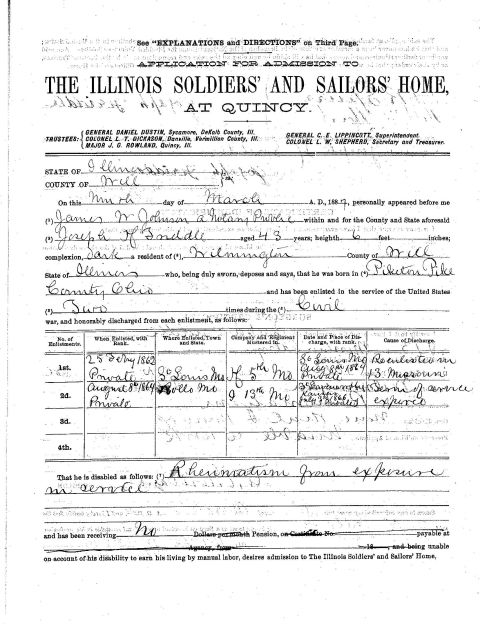 See "EXPLANATIONS and DIRECTIONS" on Third Page.
APPLICATION FOR ADMISSION TO
THE ILLINOIS SOLDIERS' AND SAILORS' HOME,
AT QUINCY.
TRUSTEES: GENERAL DANIEL DUSTIN, Sycamore, DeKalb County, Ill.
COLONEL L. T. DICKASON, Danville, Vermillion County, Ill.
MAJOR J. G. ROWLAND, Quincy, Ill.
GENERAL C. E. LIPPINCOTT, Superintendent.
COLONEL L. W. SHEPHERD, Secretary and Treasurer.
STATE OF Illinois
COUNTY OF Will
On this Ninth day of March A. D., 1887, personally appeared before me
(*) James W Johnson a Notary Public within and for the County and State aforesaid
(*) Joseph H Friddle aged 43 years; heighth 6 feet inches;
complexion, dark a resident of (*), Wilmington County of Will
State of Illinois who, being duly sworn, deposes and says, that he was born in (*) Piketon Pike
County Ohio and has been enlisted in the service of the United States
(*) Two times during the (*) Civil
war, and honorably discharged from each enlistment, as follows:
No. of Enlistments. When Enlisted, with Rank. Where Enlisted, Town and State. Company and Regiment Mustered in. Date and Place of Discharge, with rank. Cause of Discharge.
1st. 25 Feby 1862 Private St Louis Mo H 5th Mo St Louis Mo Aug 8th 1864 Private Reenlisted in 13 Missouri
2d. August 8th 1864 Private Rollo Mo I 13th Mo Kansas 1866 Term of service expired
3d.
4th.
That he is disabled as follows: (*) Rheumatism from exposure
in service
and has been receiving No Dollars per month Pension, on Certificate No. payable at
Agency, from 18 , and being unable
on account of his disability to earn his living by manual labor, desires admission to The Illinois Soldiers' and Sailors' Home,